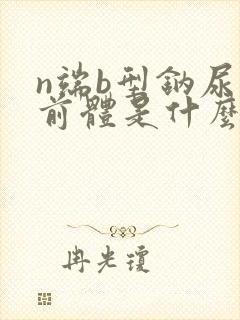 n端b型鈉尿
前體是什麼
冉光瓊